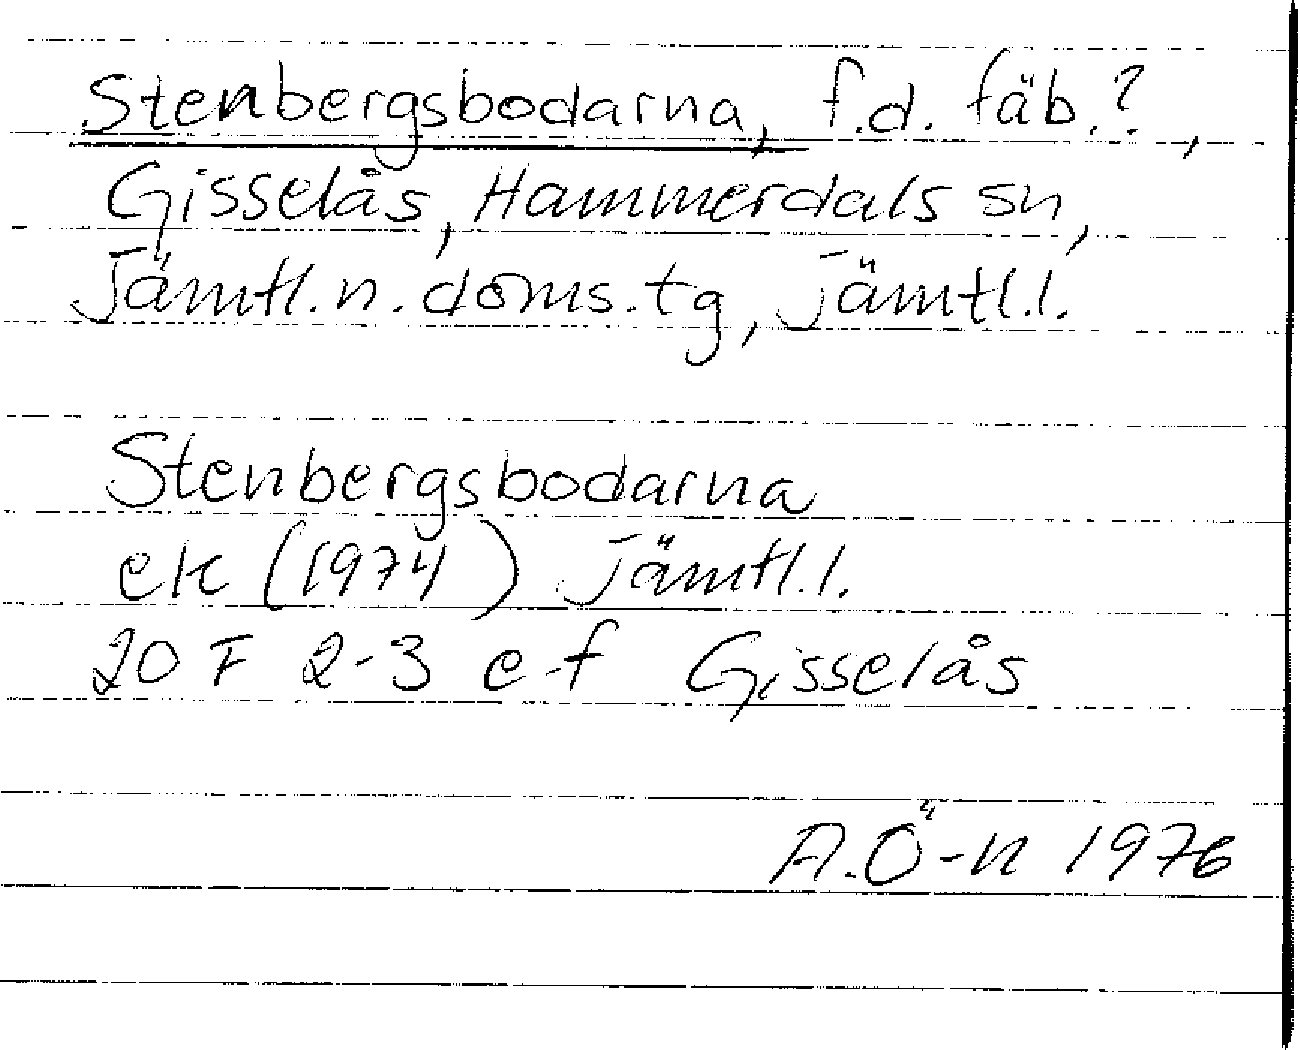 Stenbergsbodarna, f.d. fäb.?,
Gisselås, Hammerdals sn,
Jämtl.n.doms.tg, Jämtl.l.
Stenbergsbodarna
ek (1974) Jämtl.l.
20 F 2-3 e-f Gisselås
A.Ö-n 1976